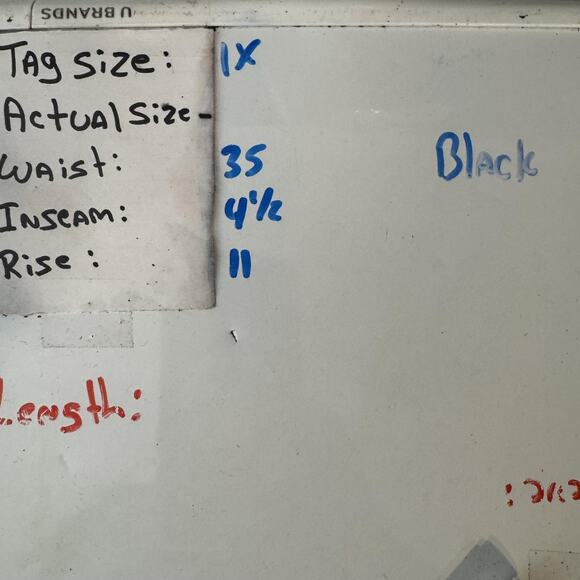 U BRANDS
Tag Size: 1X
Actual Size -
Waist: 35 Black
Inseam: 4 1/2
Rise: 11
Length: